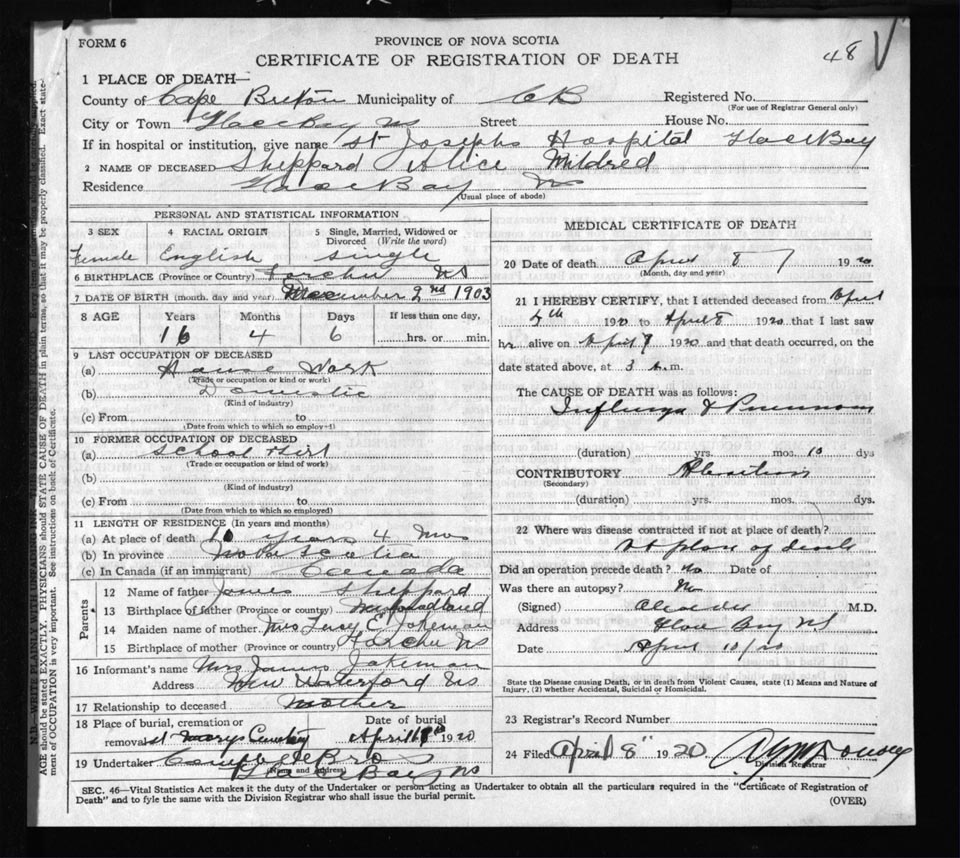 FORM 6
PROVINCE OF NOVA SCOTIA
CERTIFICATE OF REGISTRATION OF DEATH
48
1 PLACE OF DEATH—
County of Cape Breton Municipality of CB Registered No.
(For use of Registrar General only)
City or Town Glace Bay NS Street House No.
If in hospital or institution, give name St Josephs Hospital Glace Bay
2 NAME OF DECEASED Sheppard Alice Mildred
Residence Glace Bay NS
(Usual place of abode)
PERSONAL AND STATISTICAL INFORMATION
3 SEX 4 RACIAL ORIGIN 5 Single, Married, Widowed or Divorced (Write the word)
Female English Single
6 BIRTHPLACE (Province or Country) NS
7 DATE OF BIRTH (month, day and year) December 2nd 1903
8 AGE Years Months Days If less than one day,
16 4 6 hrs. or min.
9 LAST OCCUPATION OF DECEASED
(a) House Work
(Trade or occupation or kind or work)
(b) Domestic
(Kind of industry)
(c) From to
(Date from which to which so employed)
10 FORMER OCCUPATION OF DECEASED
(a) School Girl
(Trade or occupation or kind of work)
(b)
(Kind of industry)
(c) From to
(Date from which to which so employed)
11 LENGTH OF RESIDENCE (In years and months)
(a) At place of death years 4 Mos
(b) In province Nova Scotia
(c) In Canada (if an immigrant) Canada
Parents
12 Name of father James Sheppard
13 Birthplace of father (Province or country) Newfoundland
14 Maiden name of mother Mrs E. Jakeman
15 Birthplace of mother (Province or country) NS
16 Informant's name Mrs James Jakeman
Address New Waterford NS
17 Relationship to deceased Mother
18 Place of burial, cremation or removal St Marys Cemetery Date of burial April 1920
19 Undertaker Campbell Bros
Glace Bay NS
(Name and address)
MEDICAL CERTIFICATE OF DEATH
20 Date of death April 8 1920
(Month, day and year)
21 I HEREBY CERTIFY, that I attended deceased from April
1920 to April 8 1920 that I last saw
her alive on April 1920 and that death occurred, on the
date stated above, at 3 m.
The CAUSE OF DEATH was as follows:
Influenza & Pneumonia
(duration) yrs. mos. 10 dys
CONTRIBUTORY
(Secondary)
(duration) yrs. mos. dys.
22 Where was disease contracted if not at place of death?
At place of death
Did an operation precede death? No Date of
Was there an autopsy? No
(Signed) M.D.
Address Glace Bay NS
Date April 10/20
State the Disease causing Death, or in death from Violent Causes, state (1) Means and Nature of Injury, (2) whether Accidental, Suicidal or Homicidal.
23 Registrar's Record Number
24 Filed April 8" 1920
Division Registrar
SEC. 46—Vital Statistics Act makes it the duty of the Undertaker or person acting as Undertaker to obtain all the particulars required in the "Certificate of Registration of
Death" and to fyle the same with the Division Registrar who shall issue the burial permit.
(OVER)